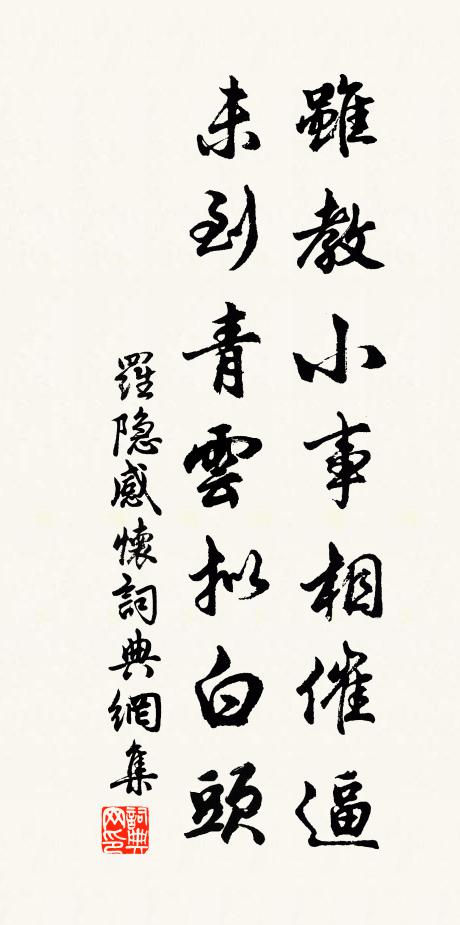 雖教小事相催逼
未到青雲拟白頭
羅隐感懷詞典網集
詞典网印